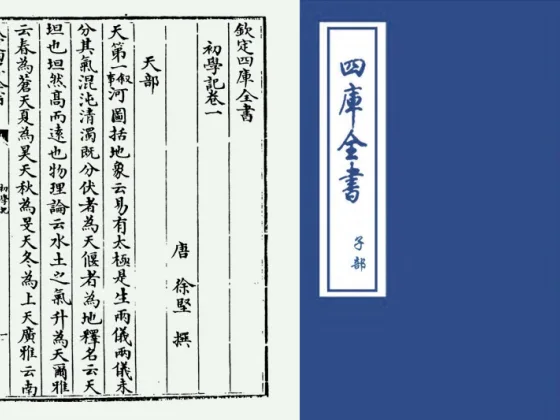 四庫全書
子部
欽定四庫全書
初學記卷一
唐 徐堅 撰
天部
天第一叙事河圖括地象云易有太極是生兩儀兩儀未
分其氣混沌清濁既分伏者為天偃者為地釋名云天
坦也坦然髙而遠也物理論云水土之氣升為天爾雅
云春為蒼天夏為昊天秋為旻天冬為上天廣雅云南
初學記
一